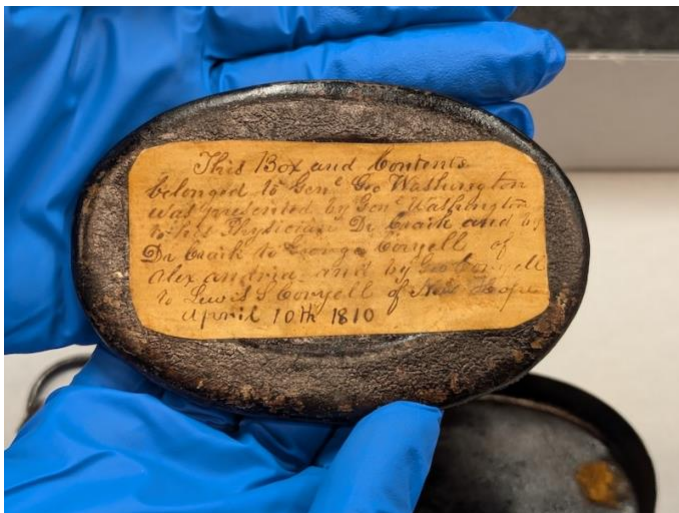 This Box and Contents
belonged to Genl Geo Washington
was presented by Genl Washington
to his Physician Dr Craik and by
Dr Craik to George Coryell of
Alexandria and by Geo Coryell
to Lewis S Coryell of New Hope
April 10th 1810